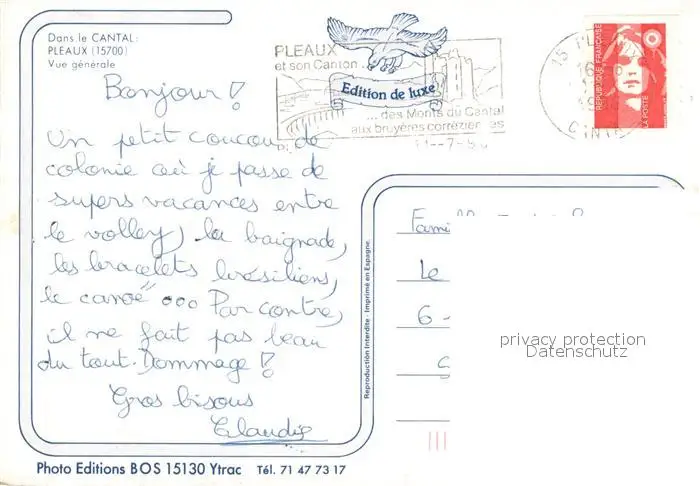 Dans le CANTAL:
PLEAUX (15700)
Vue générale
PLEAUX
et son Canton ...
Edition de luxe
... des Monts du Cantal
aux bruyères corréziennes
15 PL
CANTAL
REPUBLIQUE FRANÇAISE
LA POSTE
Bonjour !
Un petit coucou de
colonie où je passe de
supers vacances entre
le volley, la baignade,
les bracelets brésiliens,
le canoë ... Par contre,
il ne fait pas beau
du tout. Dommage !
Gros bisous
Claudie
Reproduction Interdite - Imprimé en Espagne.
Fami
Le
6
privacy protection
Datenschutz
Photo Editions BOS 15130 Ytrac Tél. 71 47 73 17